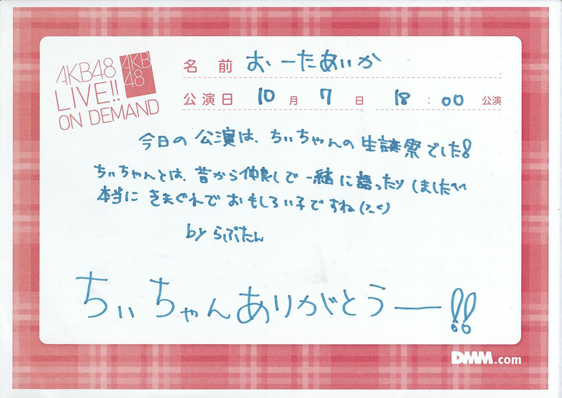 AKB48
LIVE!!
ON DEMAND
AKB
48
名前 おーたあいか
公演日 10月7日 18:00公演
今日の公演は、ちぃちゃんの生誕祭でした!
ちぃちゃんとは、昔から仲良しで一緒に語ったりしました^^
本当にきまぐれでおもしろい子ですね(><)
by らぶたん
ちぃちゃんありがとうー!!
DMM.com